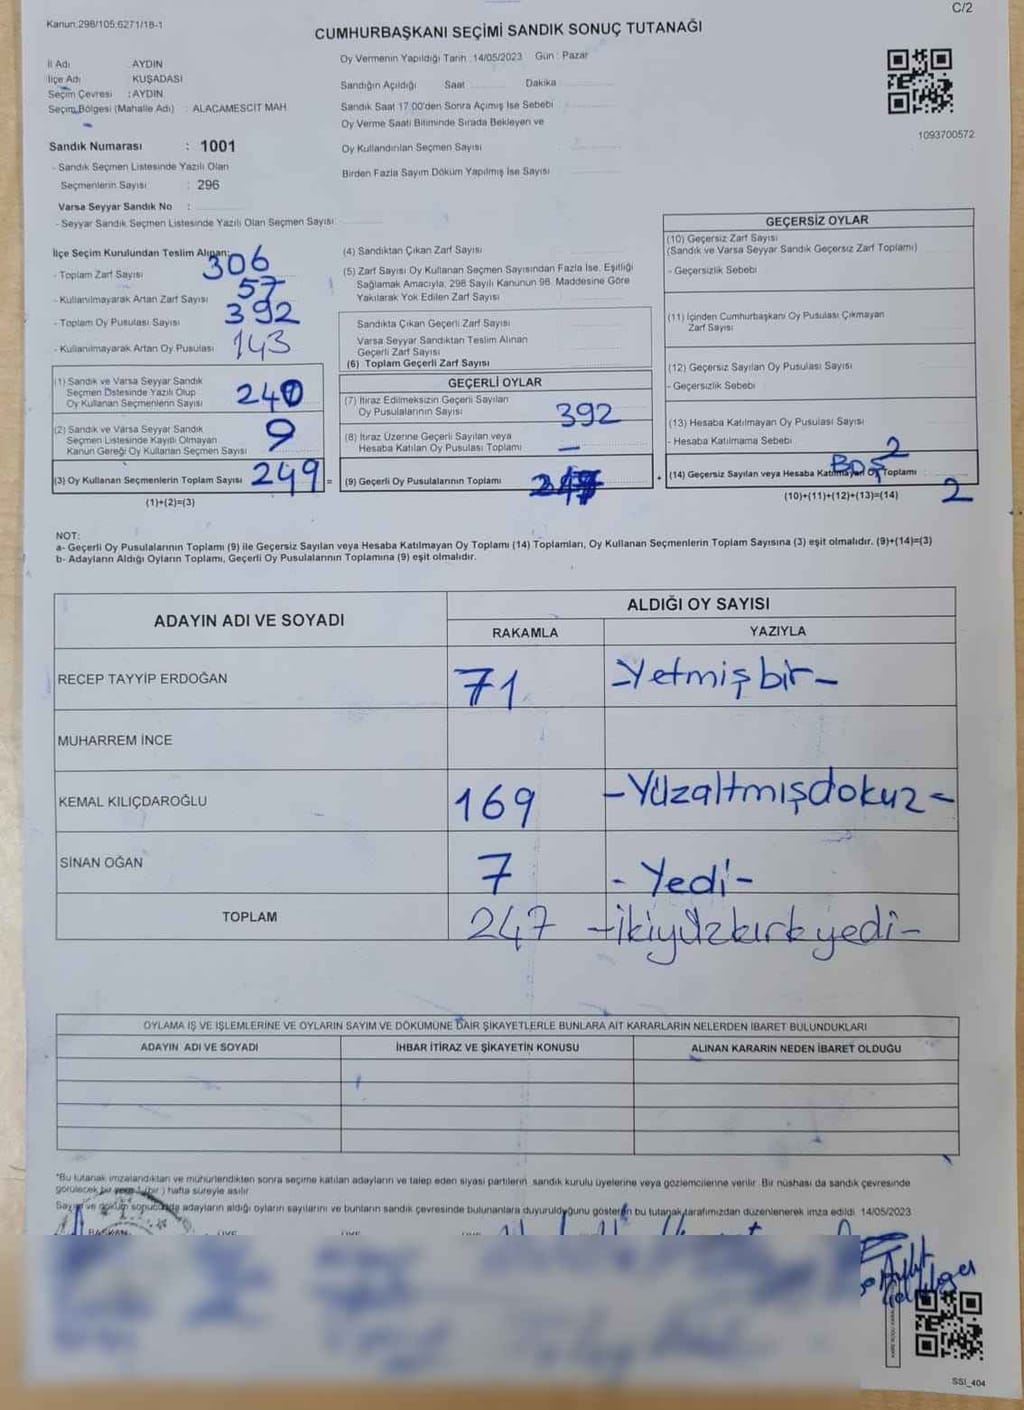 C/2
Kanun:298/105:6271/18-1
CUMHURBAŞKANI SEÇİMİ SANDIK SONUÇ TUTANAĞI
İl Adı : AYDIN
İlçe Adı : KUŞADASI
Seçim Çevresi : AYDIN
Seçim Bölgesi (Mahalle Adı) : ALACAMESCİT MAH.
Oy Vermenin Yapıldığı Tarih : 14/05/2023 Gün : Pazar
Sandığın Açıldığı Saat Dakika
Sandık Saat 17:00'den Sonra Açımış İse Sebebi
Oy Verme Saati Bitiminde Sırada Bekleyen ve
Oy Kullandırılan Seçmen Sayısı
Birden Fazla Sayım Döküm Yapılmış İse Sayısı
1093700572
Sandık Numarası : 1001
- Sandık Seçmen Listesinde Yazılı Olan
Seçmenlerin Sayısı : 296
Varsa Seyyar Sandık No :
- Seyyar Sandık Seçmen Listesinde Yazılı Olan Seçmen Sayısı:
İlçe Seçim Kurulundan Teslim Alınan:
- Toplam Zarf Sayısı 306
- Kullanılmayarak Artan Zarf Sayısı 57
- Toplam Oy Pusulası Sayısı 392
- Kullanılmayarak Artan Oy Pusulası 143
(1) Sandık ve Varsa Seyyar Sandık
Seçmen Listesinde Yazılı Olup
Oy Kullanan Seçmenlerin Sayısı 240
(2) Sandık ve Varsa Seyyar Sandık
Seçmen Listesinde Kayıtlı Olmayan
Kanun Gereği Oy Kullanan Seçmen Sayısı 9
(3) Oy Kullanan Seçmenlerin Toplam Sayısı 249 =
(1)+(2)=(3)
(4) Sandıktan Çıkan Zarf Sayısı
(5) Zarf Sayısı Oy Kullanan Seçmen Sayısından Fazla İse, Eşitliği
Sağlamak Amacıyla, 298 Sayılı Kanunun 98. Maddesine Göre
Yakılarak Yok Edilen Zarf Sayısı
Sandıkta Çıkan Geçerli Zarf Sayısı
Varsa Seyyar Sandıktan Teslim Alınan
Geçerli Zarf Sayısı
(6) Toplam Geçerli Zarf Sayısı
GEÇERLİ OYLAR
(7) İtiraz Edilmeksizin Geçerli Sayılan
Oy Pusulalarının Sayısı 392
(8) İtiraz Üzerine Geçerli Sayılan veya
Hesaba Katılan Oy Pusulası Toplamı –
(9) Geçerli Oy Pusulalarının Toplamı 247 +
GEÇERSİZ OYLAR
(10) Geçersiz Zarf Sayısı
(Sandık ve Varsa Seyyar Sandık Geçersiz Zarf Toplamı)
- Geçersizlik Sebebi
(11) İçinden Cumhurbaşkanı Oy Pusulası Çıkmayan
Zarf Sayısı
(12) Geçersiz Sayılan Oy Pusulası Sayısı
- Geçersizlik Sebebi
(13) Hesaba Katılmayan Oy Pusulası Sayısı 2
- Hesaba Katılmama Sebebi BOŞ
(14) Geçersiz Sayılan veya Hesaba Katılmayan Oy Toplamı 2
(10)+(11)+(12)+(13)=(14)
NOT:
a- Geçerli Oy Pusulalarının Toplamı (9) ile Geçersiz Sayılan veya Hesaba Katılmayan Oy Toplamı (14) Toplamları, Oy Kullanan Seçmenlerin Toplam Sayısına (3) eşit olmalıdır. (9)+(14)=(3)
b- Adayların Aldığı Oyların Toplamı, Geçerli Oy Pusulalarının Toplamına (9) eşit olmalıdır.
ADAYIN ADI VE SOYADI ALDIĞI OY SAYISI
RAKAMLA YAZIYLA
RECEP TAYYİP ERDOĞAN 71 -Yetmişbir-
MUHARREM İNCE
KEMAL KILIÇDAROĞLU 169 -Yüzaltmışdokuz-
SİNAN OĞAN 7 -Yedi-
TOPLAM 247 -ikiyüzkırkyedi-
OYLAMA İŞ VE İŞLEMLERİNE VE OYLARIN SAYIM VE DÖKÜMÜNE DAİR ŞİKAYETLERLE BUNLARA AİT KARARLARIN NELERDEN İBARET BULUNDUKLARI
ADAYIN ADI VE SOYADI İHBAR İTİRAZ VE ŞİKAYETİN KONUSU ALINAN KARARIN NEDEN İBARET OLDUĞU
*Bu tutanak imzalandıktan ve mühürlendikten sonra seçime katılan adayların ve talep eden siyasi partilerin sandık kurulu üyelerine veya gözlemcilerine verilir. Bir nüshası da sandık çevresinde
görülecek bir yere 1 (bir) hafta süreyle asılır.
Sayım ve döküm sonucunda adayların aldığı oyların sayılarını ve bunların sandık çevresinde bulunanlara duyurulduğunu gösteren bu tutanak tarafımızdan düzenlenerek imza edildi. 14/05/2023
BAŞKAN ÜYE ÜYE
SSI_404